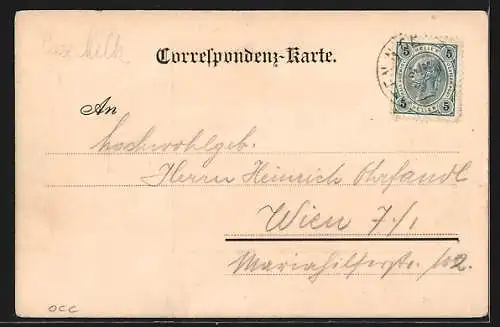 Correspondenz-Karte.
5 HELLER 5
5 HELLER 5
An
Hochwohlgeb.
Herrn Heinrich Ohrfandl
Wien 7/1
Mariahilferstr. 102.
OCC